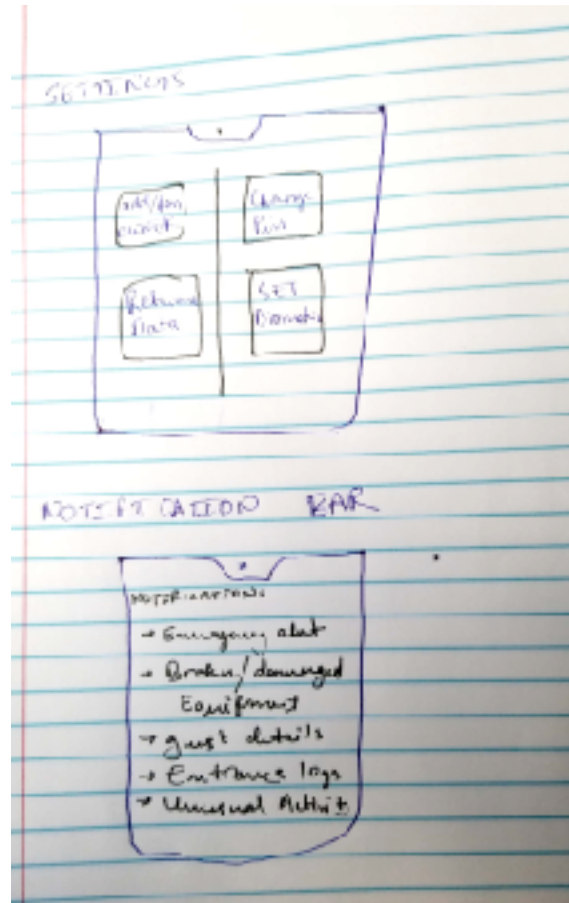 SETTINGS
Change
Pin
Data
SET
NOTIFICATION BAR
NOTIFICATIONS
→ Emergency alert
→ Broken/damaged
Equipment
→ guest details
→ Entrance logs
→ Unusual Activity